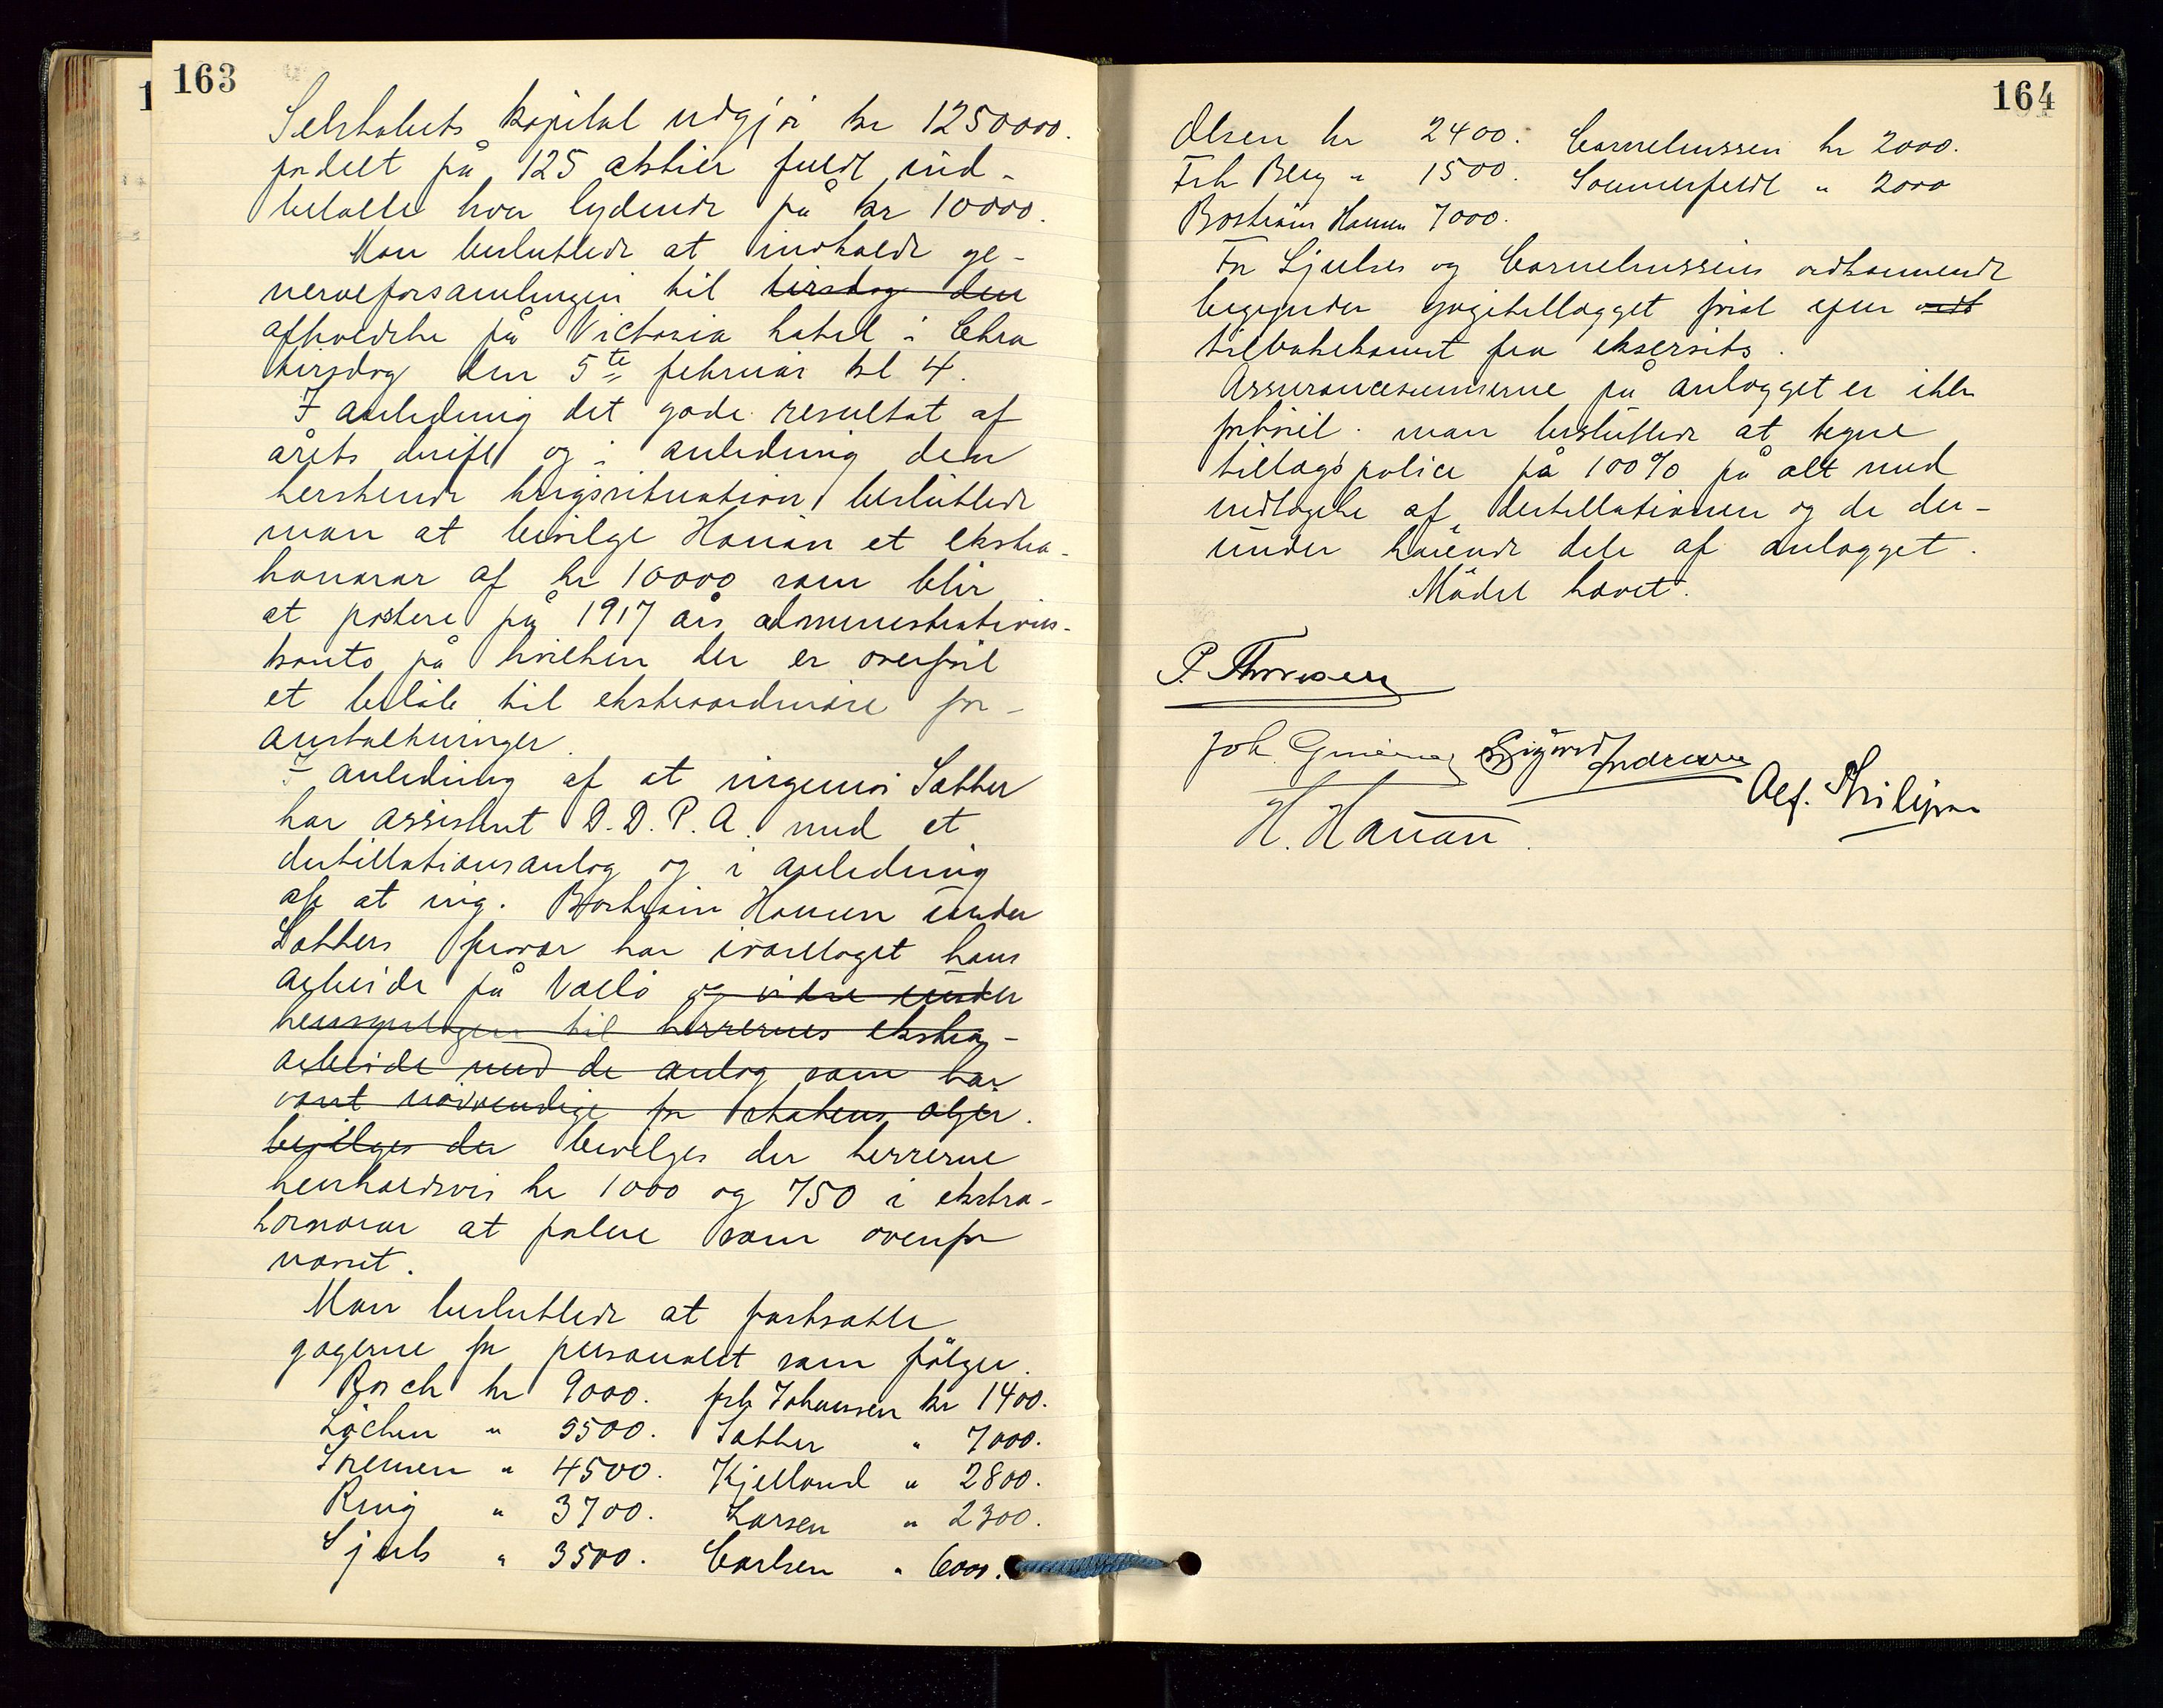 163
Selskabets kapital udgjör kr 1250000.
fordelt på 125 aktier fuldt ind-
betalte hver lydende på kr 10000.
Man besluttede at indkalde ge-
neralforsamlingen til tirsdag den
afholdelse på Victoria hotel i Chra
tirsdag den 5te februar kl 4.
I anledning det gode resultat af
årets drift og i anledning den
herskende krigssituation besluttede
man at bevilge Hauan et ekstra-
honorar af kr 10000 som blir
at postere på 1917 års administrations-
konto på hvilken der er overfört
et belöb til ekstraordinäre for-
anstaltninger.
I anledning af at ingeniör Sæther
har assistert D.D.P.A. med et
destillationsanlæg og i anledning
af at ing. Boström Hansen under
Sæthers fravær har ivaretaget hans
arbeide på Vallö og videre under
hensyntagen til herrernes ekstra-
arbeide med de anlæg som har
været nödvendige for statens oljer.
bevilges der bevilges der herrerne
henholdsvis kr 1000 og 750 i ekstra-
honorar at postere som ovenfor
nævnt.
Man besluttede at fastsætte
gagerne for personalet som fölger.
Bosch kr 9000. frk Johansen kr 1400.
Löchen " 5500. Sæther " 7000.
Sörensen " 4500. Kjelland " 2800.
Ring " 3700. Larsen " 2300.
Sjuls " 3500. Carlsen " 6000.
164
Olsen kr 2400. Corneliussen kr 2000.
Frk Berg " 1500. Sommerfeldt " 2000
Boström Hansen 7000.
For Sjulses og Corneliussens vedkommende
begynder gagetillægget först efter endt
tilbakekomst fra eksersits.
Assurancesummerne på anlægget er ikke
forhöiet. man besluttede at tegne
tillægspolice på 100% på alt med
undtagelse af destillationen og de der-
under hörende dele af anlægget.
Mödet hævet.
P. Thoresen
Joh. Sigurd Andresen
H. Hauan. Alf.